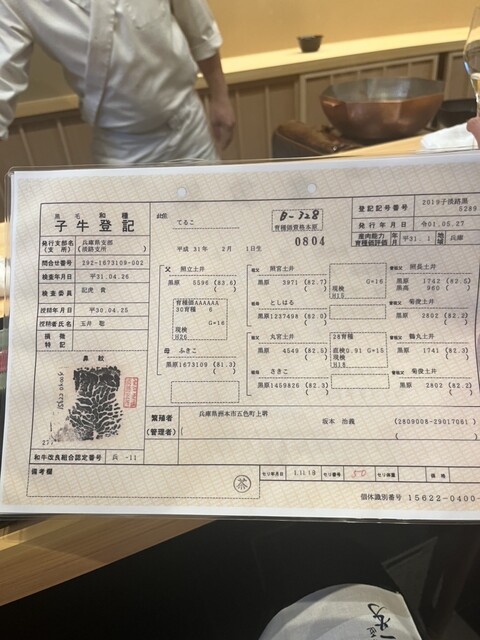 黒毛和種
子牛登記
名号 てるこ
B-328
育種価資格本原
0804
登記記号番号 2019子淡路黒
5286
発行年月日 令01.05.27
発行支部名 兵庫県支部
(支所) (淡路支所)
平成 31年 2月 1日生
産肉能力 年 平31. 1 地域 兵庫
育種価評価
問合せ番号 292-1673109-002
検査年月日 平31.04.26
検査委員
授精年月日 平30.04.25
授精者氏名 玉井
特記
父 照立土井
黒原 5596 (83.6)
育種価AAAAAA
30育種 6
G=16
現検
H26
祖父 照宮土井
黒原 3971 (82.7)
G=16
現検
H15
曾祖父 照長土井
黒原 1742 (82.5)
黒高 960
祖母 としはる
黒原1237498 (82.0)
曾祖父 菊俊土井
黒原 2802 (82.2)
母 ふきこ
黒原1673109 (81.3)
祖父 丸宮土井
黒原 4549 (82.5)
28育種
直検0.91 G=15
現検
H16
曾祖父 鶴丸土井
黒原 1741 (82.3)
祖母 さきこ
黒原1459826 (82.3)
曾祖父 菊俊土井
黒原 2802 (82.2)
鼻紋
繁殖者 兵庫県洲本市五色町上堺
(管理者)
坂本 (2809008-29017061)
和牛改良組合認定番号 兵 -11
備考欄
セリ年月日
セリ番号 50
セリ体重
価格
個体識別番号 15622-0400-